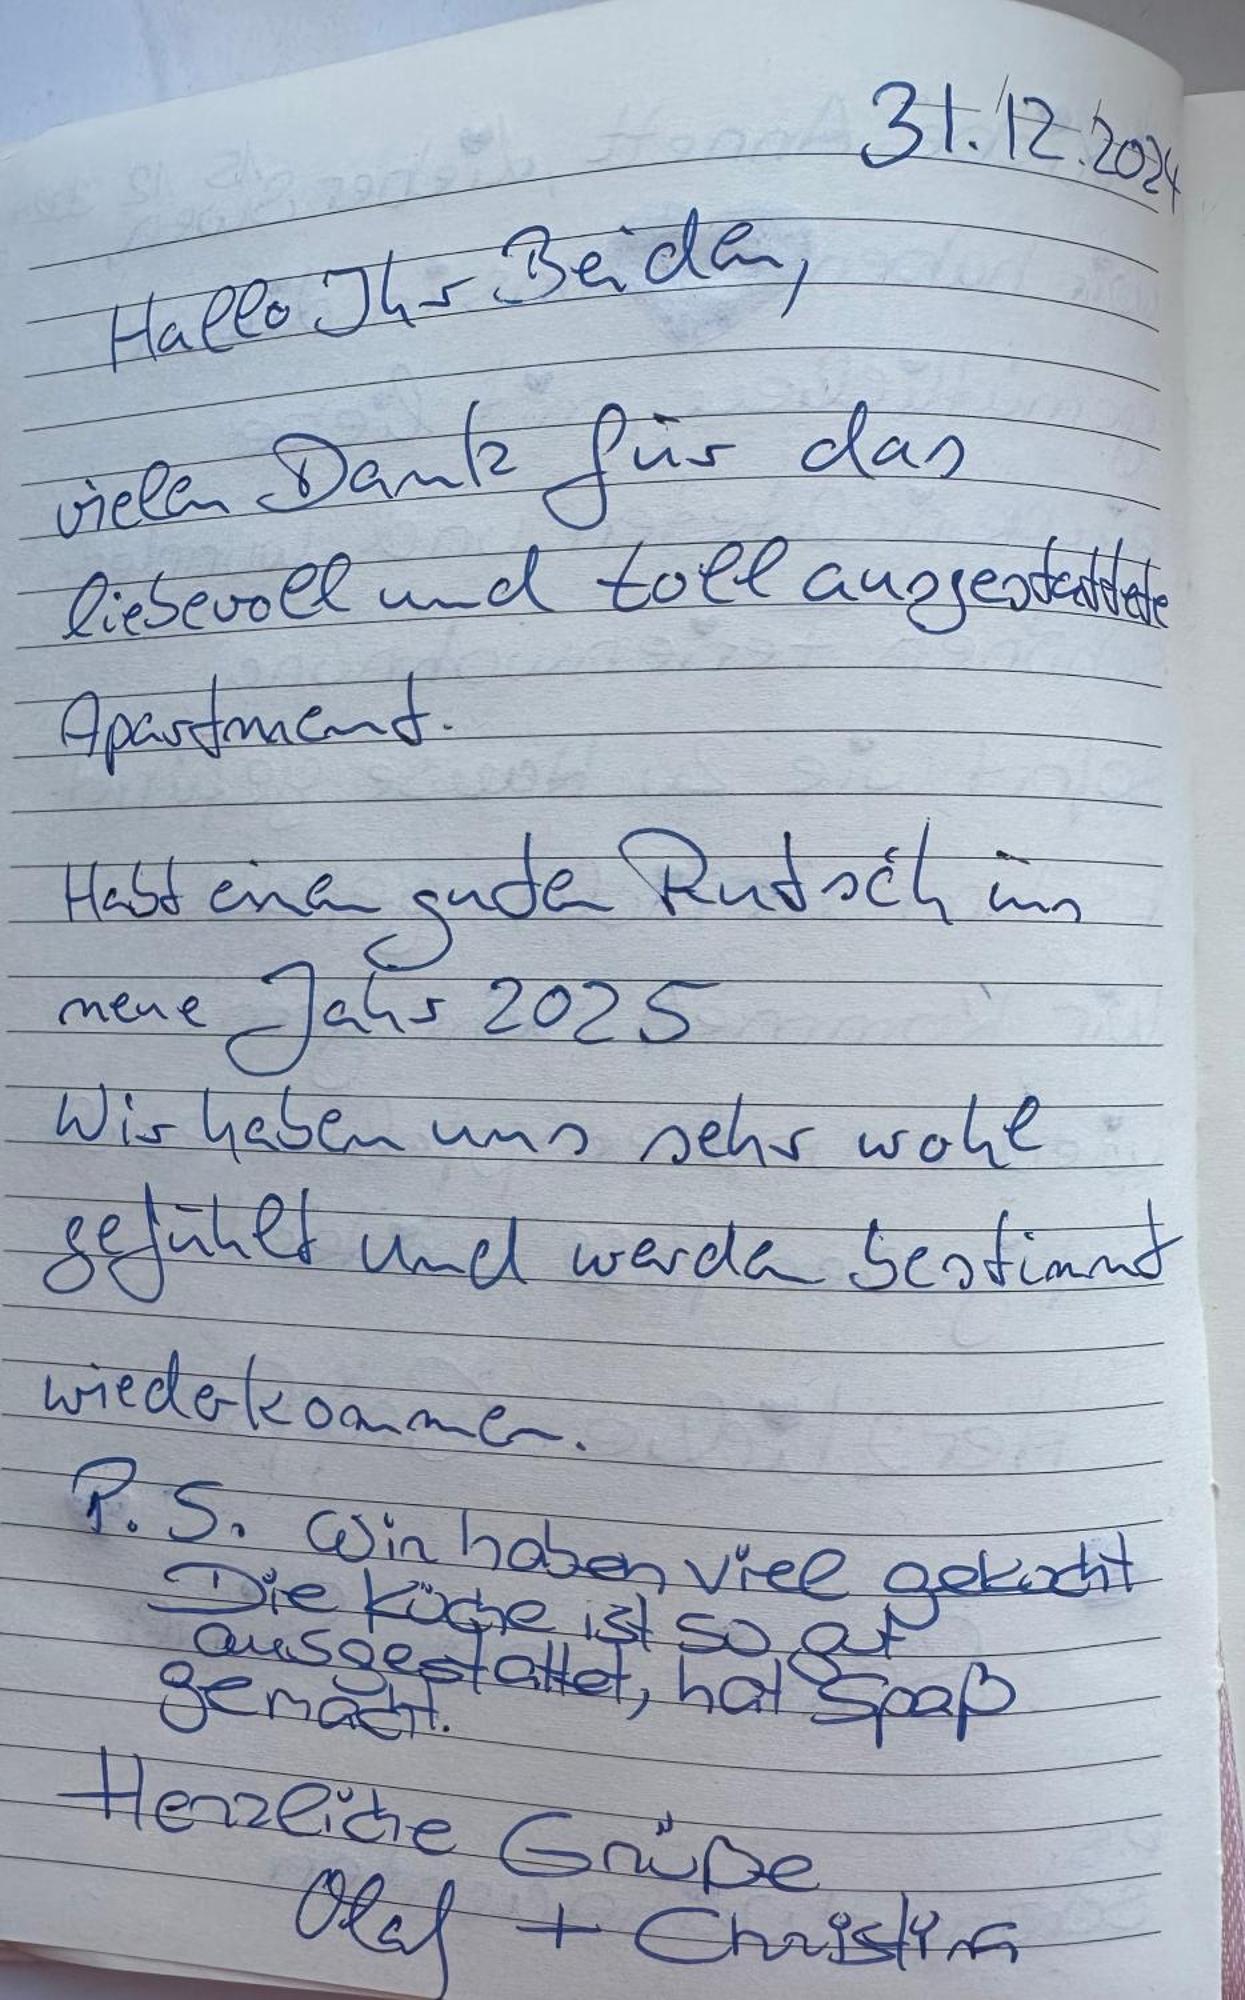 31.12.2024
Hallo Ihr Beiden,
vielen Dank für das
liebevoll und toll ausgestattete
Apartment.
Habt einen guten Rutsch ins
neue Jahr 2025
Wir haben uns sehr wohl
gefühlt und werden bestimmt
wiederkommen.
P.S. Wir haben viel gekocht
Die Küche ist so gut
ausgestattet, hat Spaß
gemacht.
Herzliche Grüße
Olaf + Christina